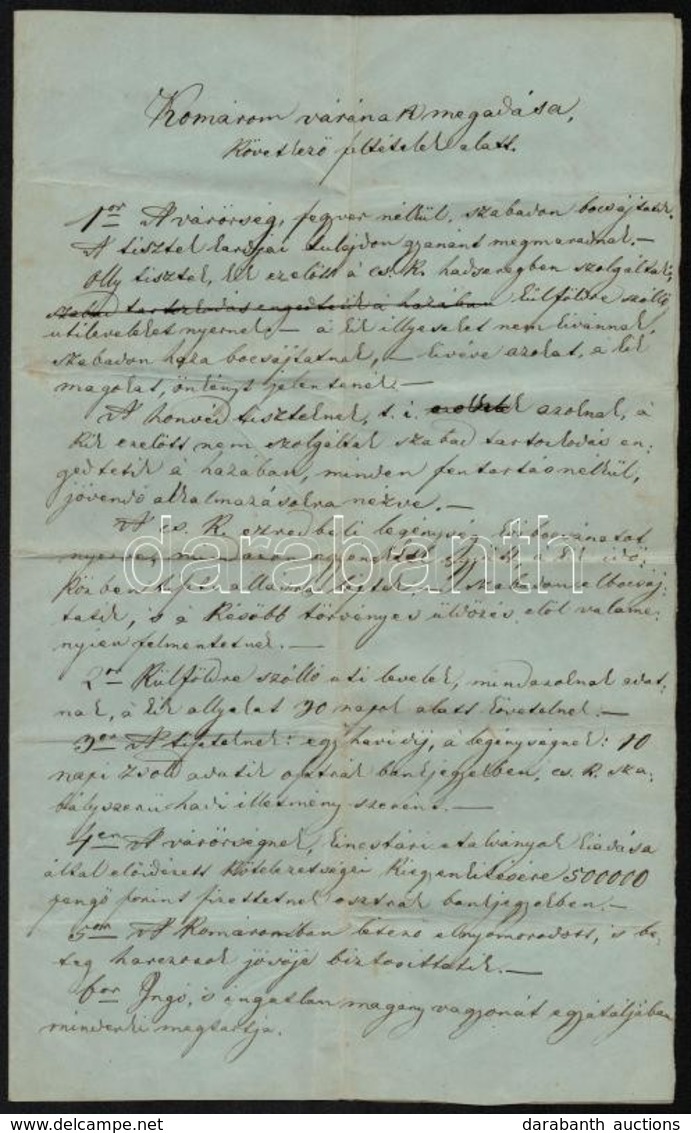 Komárom várának megadása,
következő feltételek alatt.
1ör A várörség, fegver nélkül, szabadon bocsájtatik.
A tisztek kardjai tulajdon gyanánt megmaradnak. —
Olly tisztek, kik ezelött á cs. k. hadseregben szolgáltak;
szabad tartozkodás engedtetik á hazában külföldre szólló
utileveleket nyernek, — á kik illyeseket nem kivánnak,
szabadon haza bocsájtatnak, — kivéve azokat, á kik
magokat, önként jelentenék. —
A honvéd tiszteknek, t. i. azoknak, á
kik ezelött nem szolgáltak szabad tartozkodás en-
gedtetik á hazában, minden fentartás nélkül,
jövendő alkalmazásokra nézve. —
A cs. k. ezredbeli legénység
á kik idő
közben
szabadon elbocsáj-
tatik, is á később törvényes üldözés elöl valame-
nyien felmentetnek. —
2or Külföldre szólló uti levelek, mindazoknak adat-
nak, á kik ollyakat 30 napok alatt követelnek. —
3or A tiszteknek: egy havi díj, á legénységnek: 10
napi zsold adatik osztrák bankjegyekben, cs. k. sza-
bályszerü hadi illetmény szerént. —
4er A várörségnek, kincstári utalványok kiadása
által előidézett kötelezetségei kiegyenlitésére 500000
pengő forint fizettetnek osztrák bankjegyekben. —
5ör A Komáromban létező elnyomorodott, is be-
teg harczosok jövője biztosittatik. —
6or Ingó, is ingatlan magány vagyonát egyátáljában
mindenki megtartja.
darabanth
darabanth auctions